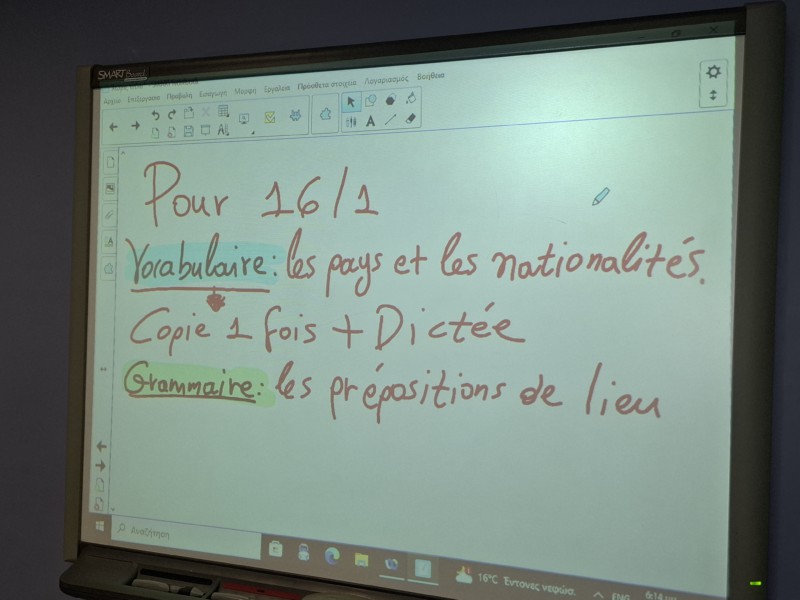 SMART Board
Αρχείο Επεξεργασία Προβολή Εισαγωγή Μορφή Εργαλεία Πρόσθετα στοιχεία Λογαριασμός Βοήθεια
Pour 16/1
Vocabulaire: les pays et les nationalités.
Copie 1 fois + Dictée
Grammaire: les prépositions de lieu
Αναζήτηση
16°C Έντονες νεφώσ.
ENG
6:14 μμ